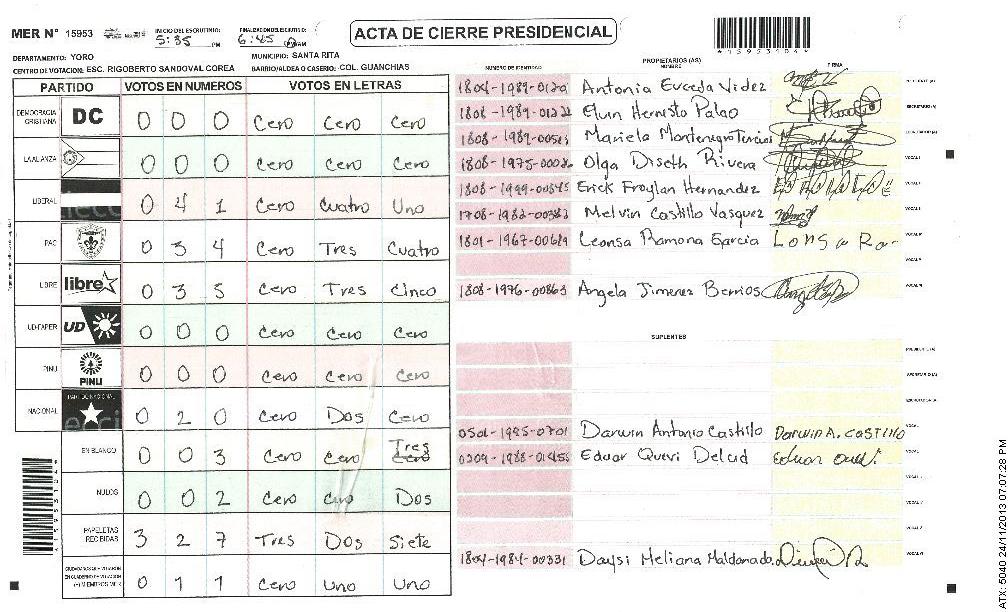 MER N° 15953 INICIO DEL ESCRUTINIO: 5:35 PM FINALIZACION ESCRUTINIO: 6:45 PM/AM ACTA DE CIERRE PRESIDENCIAL
DEPARTAMENTO: YORO MUNICIPIO: SANTA RITA
CENTRO DE VOTACION: ESC. RIGOBERTO SANDOVAL COREA BARRIO/ALDEA O CASERIO: COL. GUANCHIAS
PARTIDO VOTOS EN NUMEROS VOTOS EN LETRAS
DEMOCRACIA CRISTIANA DC 0 0 0 Cero Cero Cero
LA ALIANZA 0 0 0 Cero Cero Cero
LIBERAL 0 4 1 Cero Cuatro Uno
PAC 0 3 4 Cero Tres Cuatro
LIBRE libre 0 3 5 Cero Tres Cinco
UD-FAPER UD 0 0 0 Cero Cero Cero
PINU PINU 0 0 0 Cero Cero Cero
NACIONAL PARTIDO NACIONAL 0 2 0 Cero Dos Cero
EN BLANCO 0 0 3 Cero Cero Tres
NULOS 0 0 2 Cero Cero Dos
PAPELETAS RECIBIDAS 3 2 7 Tres Dos Siete
CIUDADANOS QUE VOTARON EN CUADERNO DE VOTACION (+) MIEMBROS MER 0 1 1 Cero Uno Uno
PROPIETARIOS (AS)
NUMERO DE IDENTIDAD NOMBRE FIRMA
Antonia Euceda Videz
Elvin Hernisto Palao SECRETARIO(A)
Mariela Montenegro
1808-1975-0002 Olga Diseth Rivera VOCAL I
Erick Froylan Hernandez
Melvin Castillo Vasquez
1801-1967-00619 Leonsa Ramona Garcia
1808-1976-00863 Angela Jimenez Berrios
SUPLENTES
PRESIDENTE (A)
SECRETARIO (A)
ESCRUTADOR (A)
0501-1985-0701 Darwin Antonio Castillo Darwin A. CASTILLO
Eduar Quevi Delcid
1804-1984-00331 Daysi Meliana Maldonado.
ATX: 5040 24/11/2013 07:07:28 PM